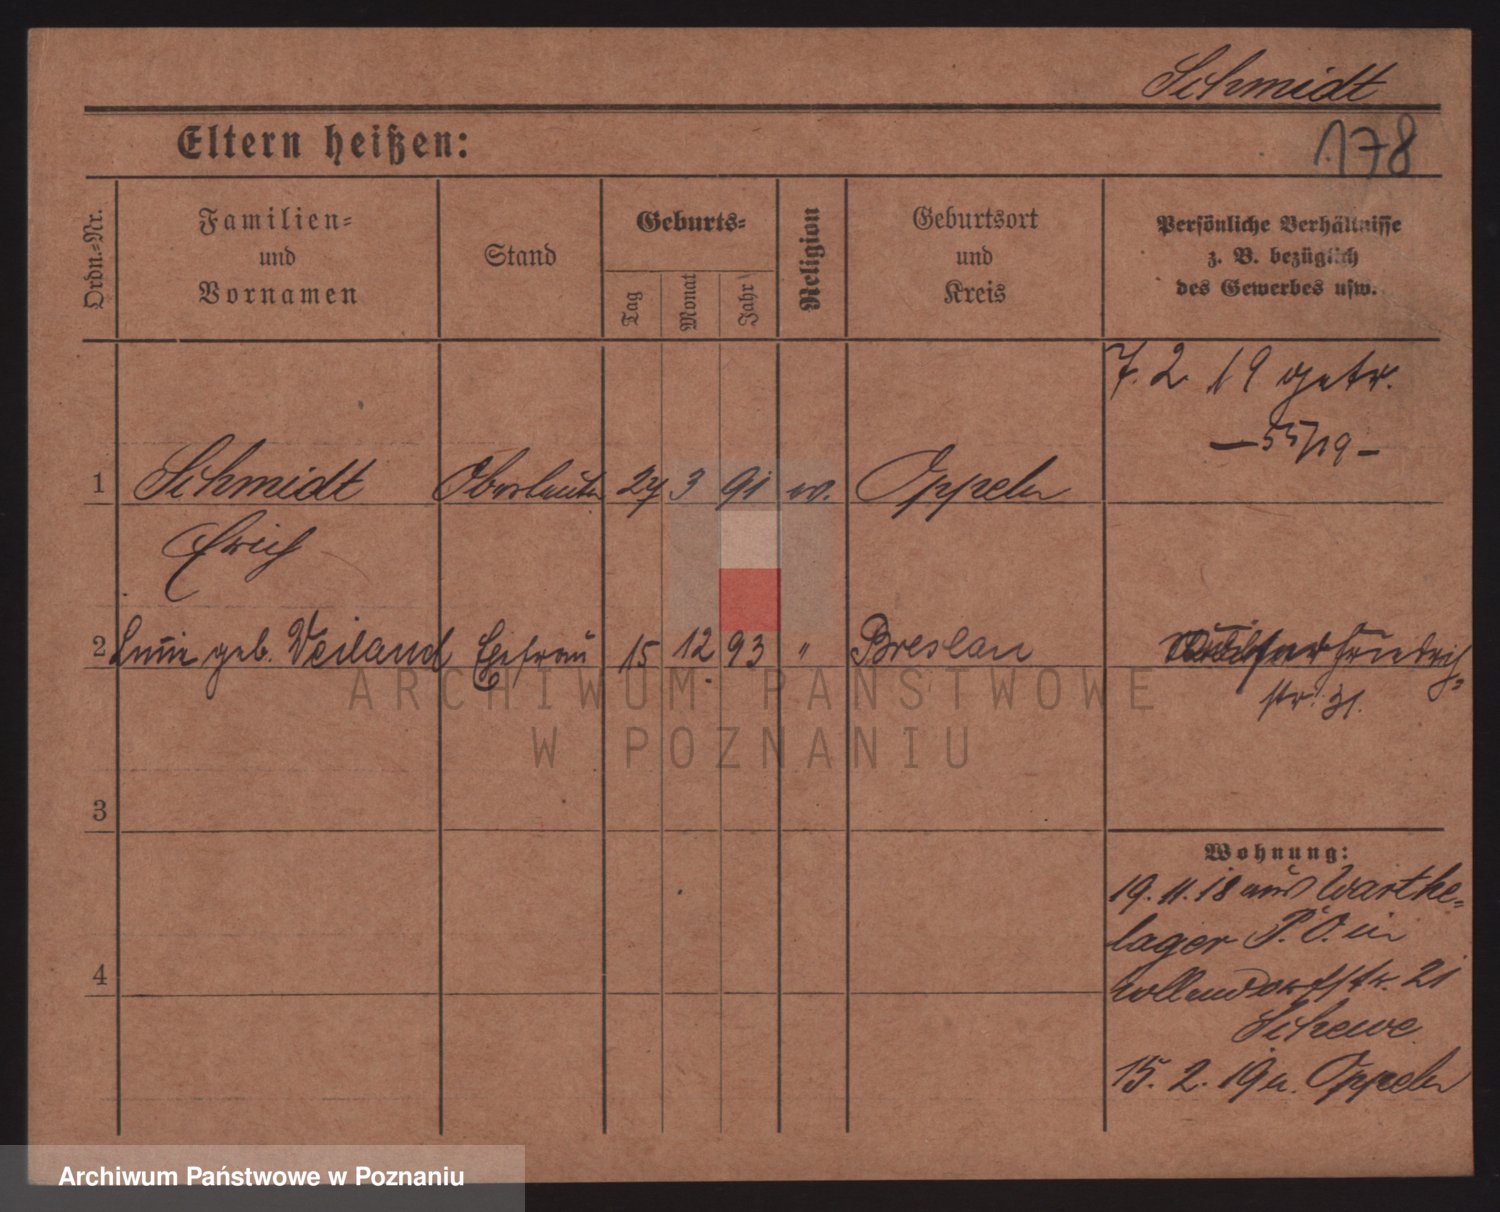 Schmidt
Eltern heißen:
178
Ordn.-Nr.
Familien-
und
Vornamen
Stand
Geburts-
Tag
Monat
Jahr
Religion
Geburtsort
und
Kreis
Persönliche Verhältnisse
z. B. bezüglich
des Gewerbes usw.
7. 2 19 getr.
— 55/19 —
1 Schmidt 27 3 91 ev. Oppeln
Erich
2 geb. Veiland Ehefrau 15 12 93 " Breslau Friedrich-
str. 31.
3
Wohnung:
19. 11. 18 aus Warthe-
lager P. O. in
4
Hollmdorfstr. 21
Schewe
15. 2. 19 n. Oppeln
ARCHIWUM PAŃSTWOWE
W POZNANIU
Archiwum Państwowe w Poznaniu